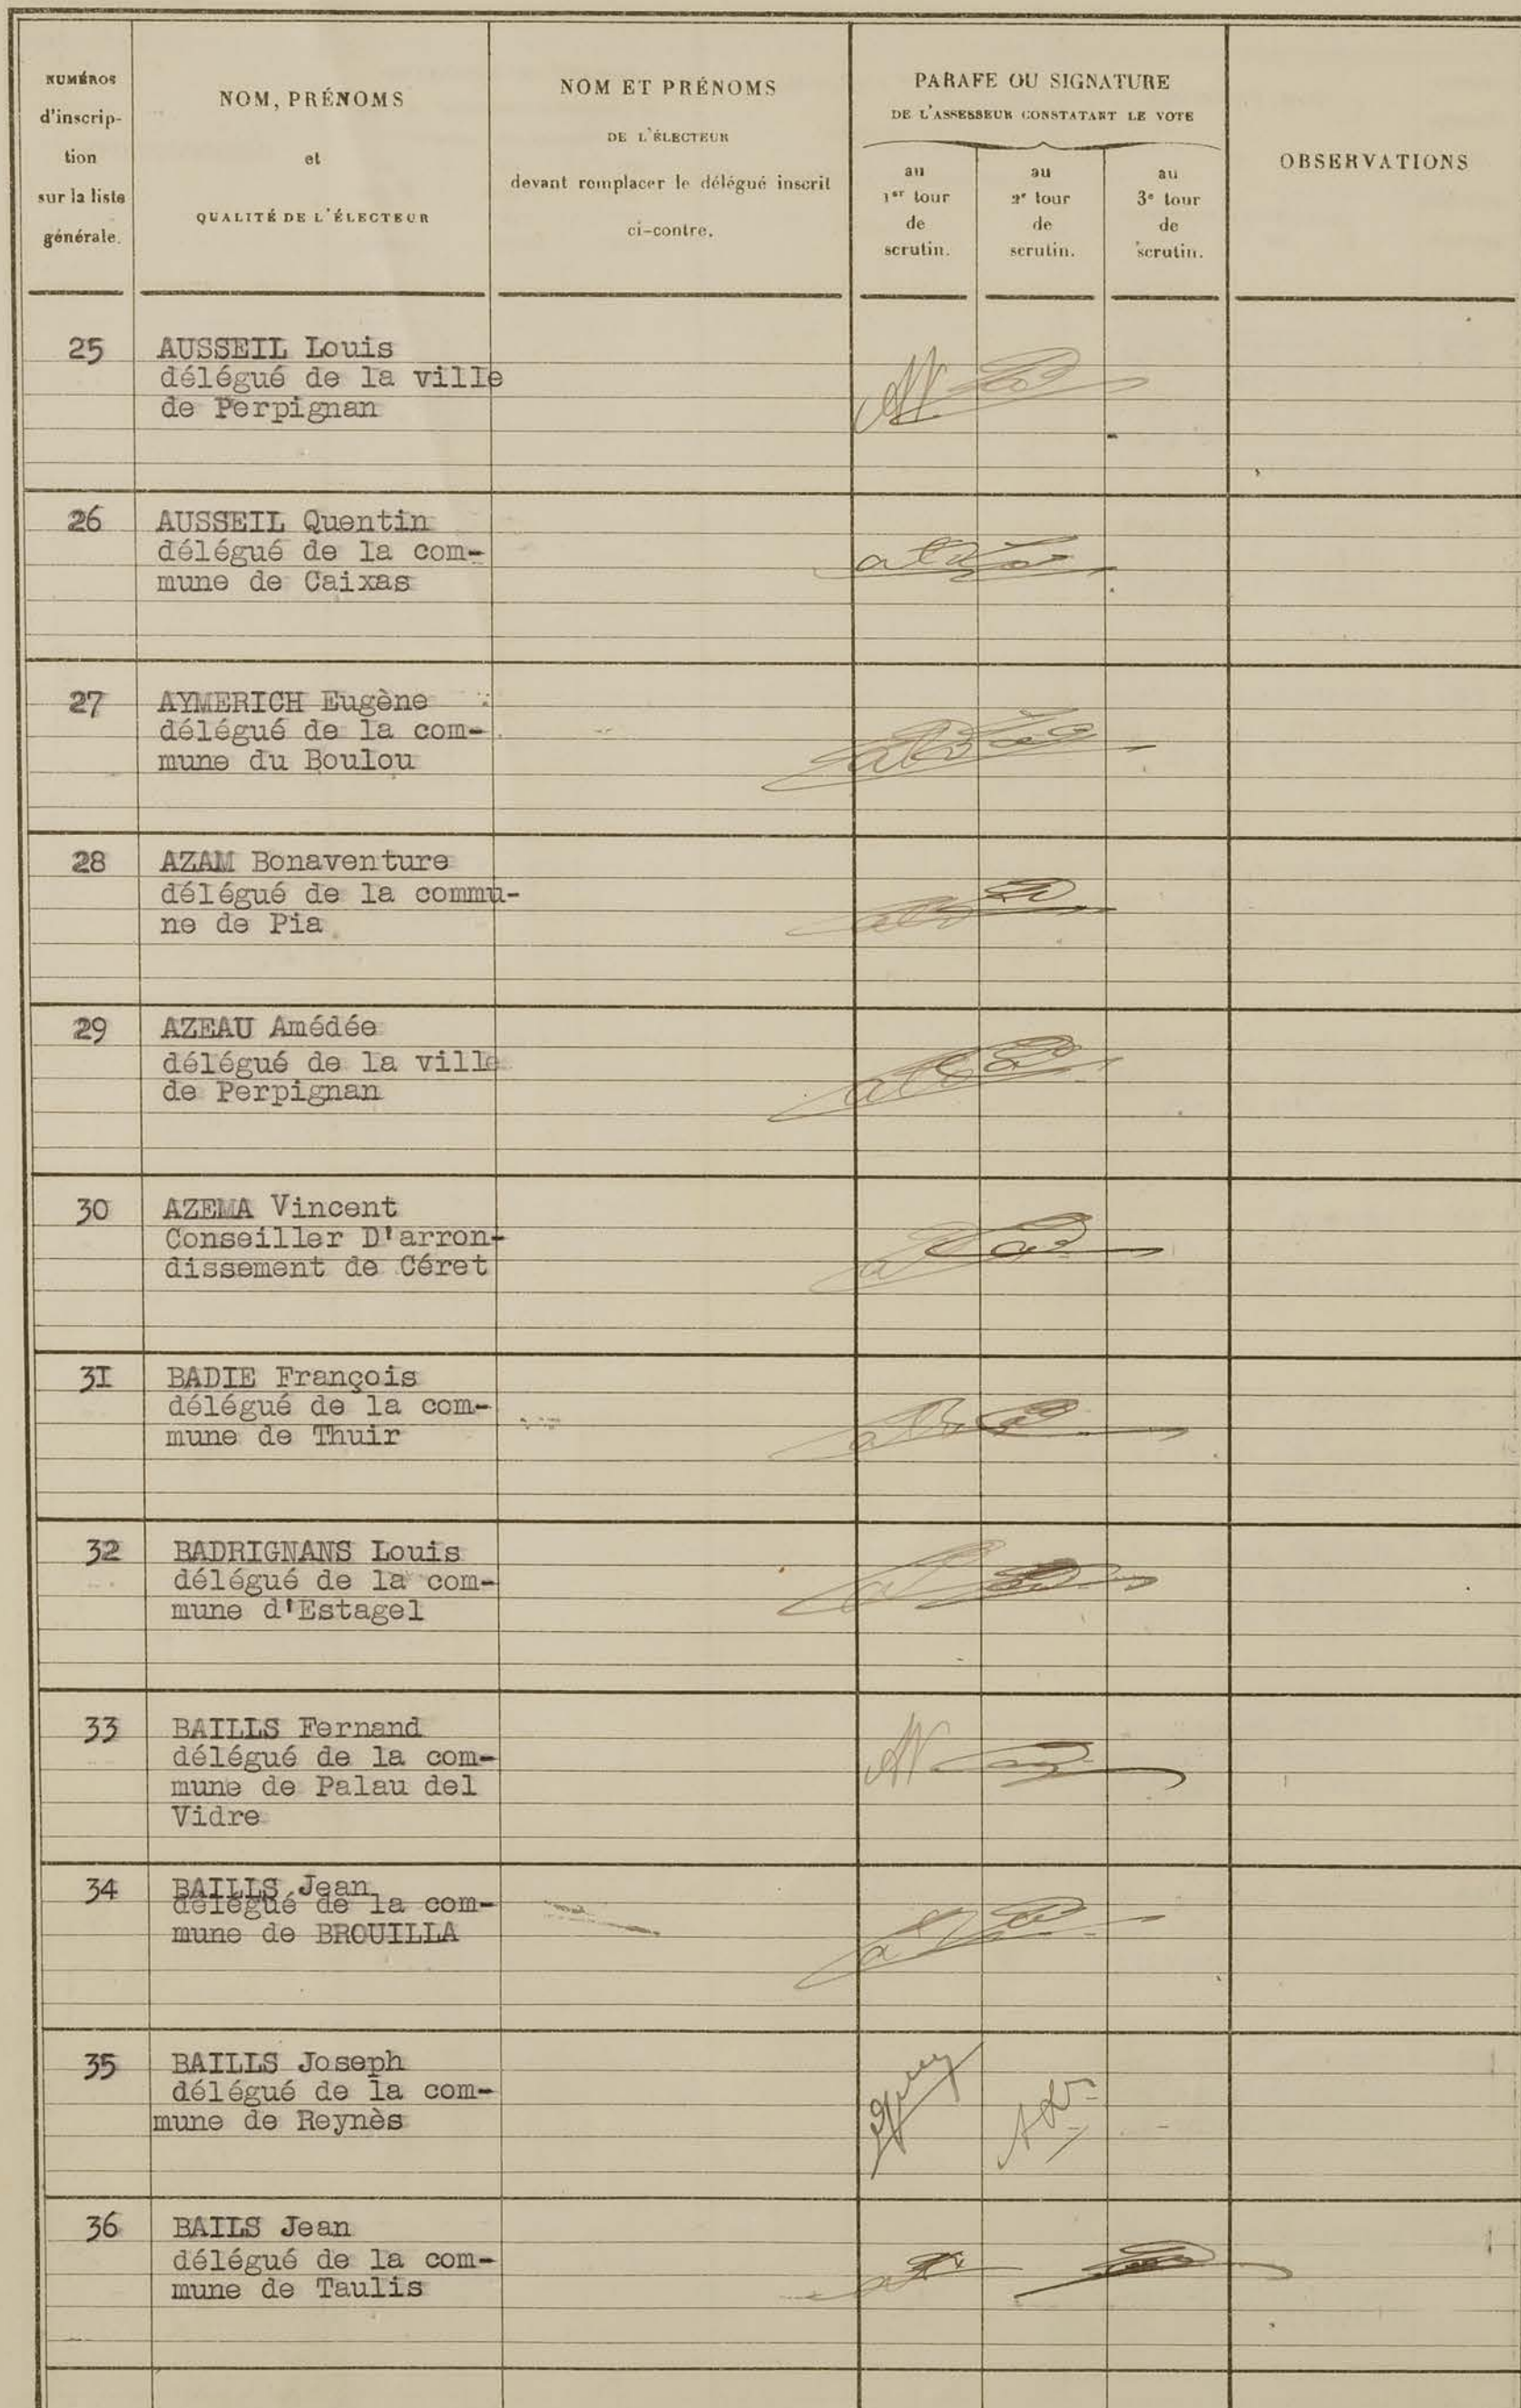 NUMÉROS
d'inscrip-
tion
sur la liste
générale.
NOM, PRÉNOMS
et
QUALITÉ DE L'ÉLECTEUR
NOM ET PRÉNOMS
DE L'ÉLECTEUR
devant remplacer le délégué inscrit
ci-contre.
PARAFE OU SIGNATURE
DE L'ASSESSEUR CONSTATANT LE VOTE
au
1er tour
de
scrutin.
au
2e tour
de
scrutin.
au
3e tour
de
scrutin.
OBSERVATIONS
25 AUSSEIL Louis
délégué de la ville
de Perpignan
26 AUSSEIL Quentin
délégué de la com-
mune de Caixas
27 AYMERICH Eugène
délégué de la com-
mune du Boulou
28 AZAM Bonaventure
délégué de la commu-
ne de Pia
29 AZEAU Amédée
délégué de la ville
de Perpignan
30 AZEMA Vincent
Conseiller D'arron-
dissement de Céret
3I BADIE François
délégué de la com-
mune de Thuir
32 BADRIGNANS Louis
délégué de la com-
mune d'Estagel
33 BAILLS Fernand
délégué de la com-
mune de Palau del
Vidre
34 BAILLS Jean
délégué de la com-
mune de BROUILLA
35 BAILLS Joseph
délégué de la com-
mune de Reynès
36 BAILS Jean
délégué de la com-
mune de Taulis